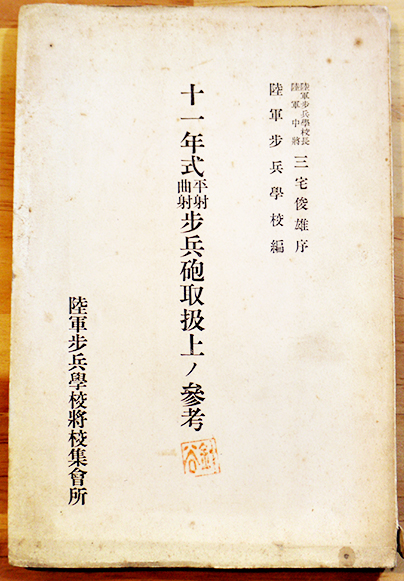 陸軍步兵學校長
陸軍中將
三宅俊雄序
陸軍步兵學校編
十一年式平射曲射步兵砲取扱上ノ參考
陸軍步兵學校將校集會所